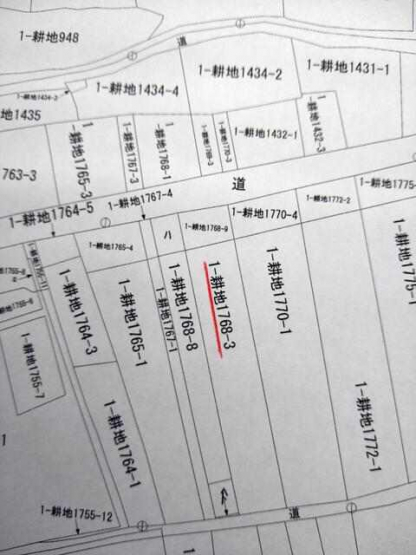 1-耕地948
道
1-耕地1434-2
1-耕地1431-1
1-耕地1434-4
地1435
1-耕地1432-1
1-耕地1432-3
763-3
1-耕地1765-3
1-耕地1767-3
1-耕地1768-1
道
1-耕地1775-
1-耕地1772-2
1-耕地1767-4
1-耕地1764-5
1-耕地1770-4
1-耕地1768-9
1-耕地1765-4
ハ
1-耕地1764-3
1-耕地1765-1
1-耕地1767-1
1-耕地1768-8
1-耕地1768-3
1-耕地1770-1
1-耕地1775-1
1-耕地1755-7
1-耕地1764-1
1-耕地1772-1
1
1-耕地1755-12
道
1